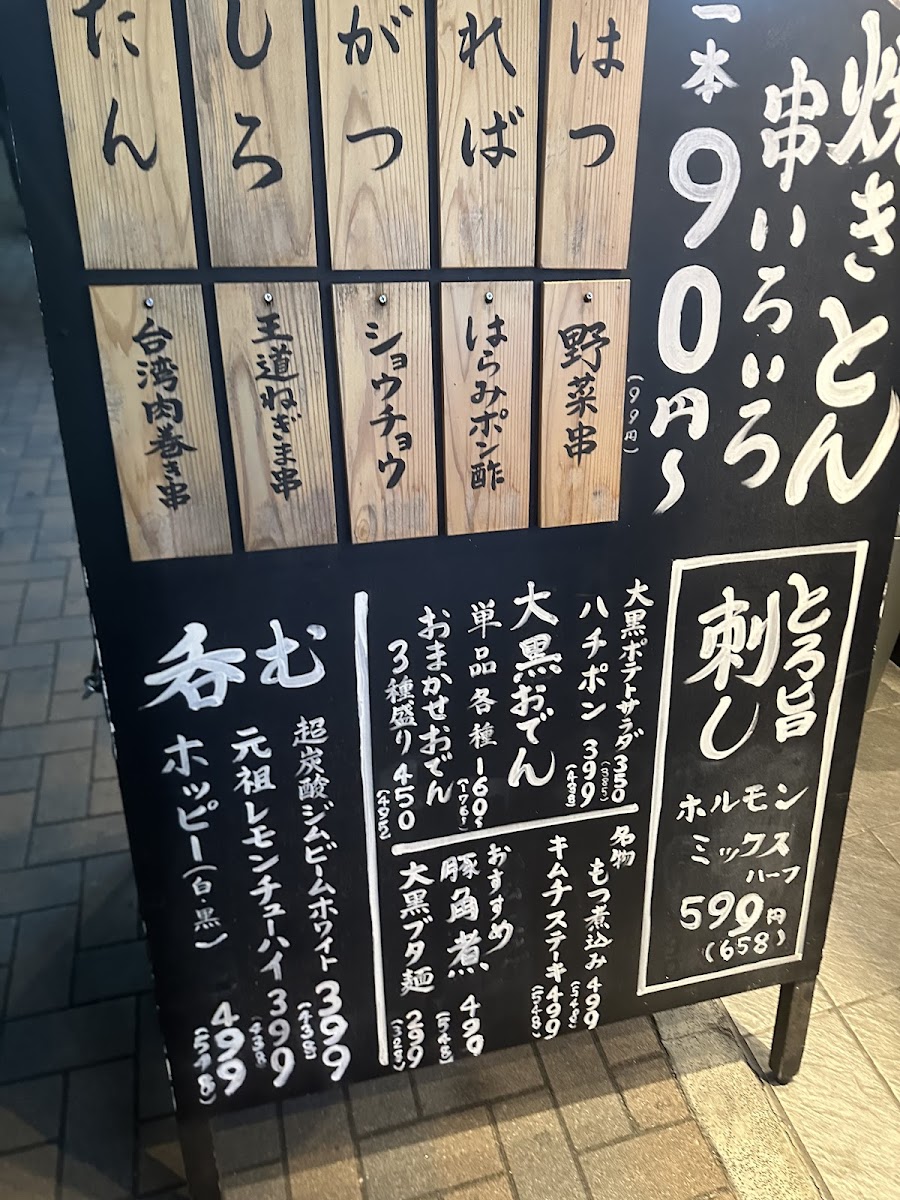 焼きとん
串いろいろ
一本90円〜
(99円)
はつ
ればー
がつ
しろ
たん
野菜串
はらみポン酢
ショウチョウ
王道ねぎま串
台湾肉巻き串
とろ旨
刺し
ホルモン
ミックス
ハーフ
599円
(658)
大黒ポテトサラダ350
(385)
ハチポン 399
(438)
大黒おでん
単品各種 160〜
(176〜)
おまかせおでん
3種盛り 450
(495)
名物
もつ煮込み 499
(548)
キムチステーキ 499
(548)
おすすめ
豚角煮 499
(548)
大黒ブタ麺 299
(328)
呑む
超炭酸ジムビームホワイト 399
(438)
元祖レモンチューハイ 399
(438
ホッピー(白・黒) 499
(548)